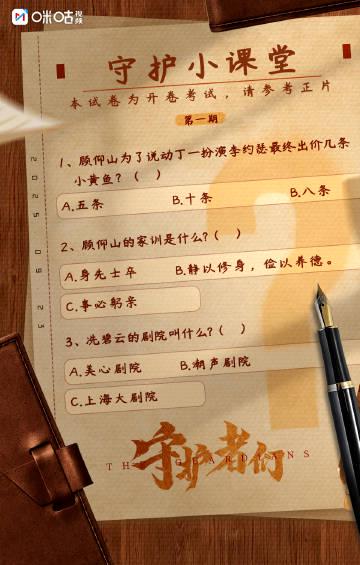 咪咕视频
守护小课堂
本试卷为开卷考试，请参考正片
第一期
1、顾仰山为了说动丁一扮演李约瑟最终出价几条
小黄鱼？（ ）
A.五条 B.十条 B.八条
2、顾仰山的家训是什么？（ ）
A.身先士卒 B.静以修身，俭以养德。
C.事必躬亲
3、冼碧云的剧院叫什么？（ ）
A.美心剧院 B.潮声剧院
C.上海大剧院
守护者们
THE GUARDIANS
2025 09 23